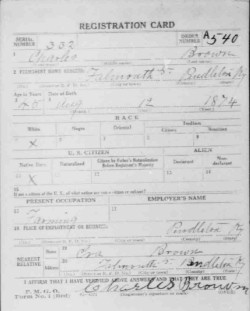 REGISTRATION CARD
SERIAL NUMBER 332 ORDER NUMBER A540
1 Charles Brown
2 PERMANENT HOME ADDRESS:
Falmouth Pendleton Ky
Age in Years Date of Birth
Aug 12 1874
RACE
White Negro Oriental Indian
Citizen Noncitizen
X
U. S. CITIZEN ALIEN
Native Born Naturalized Citizen by Father's Naturalization Before Registrant's Majority Declarant Non-declarant
X
If not a citizen of the U. S., of what nation are you a citizen or subject?
PRESENT OCCUPATION EMPLOYER'S NAME
Farming
18 PLACE OF EMPLOYMENT OR BUSINESS:
Pendleton Ky
NEAREST RELATIVE Name Brown
Address Falmouth Pendleton Ky
I AFFIRM THAT I HAVE VERIFIED ABOVE ANSWERS AND THAT THEY ARE TRUE
P. M. G. O.
Form No. 1 (Red) Charles Brown